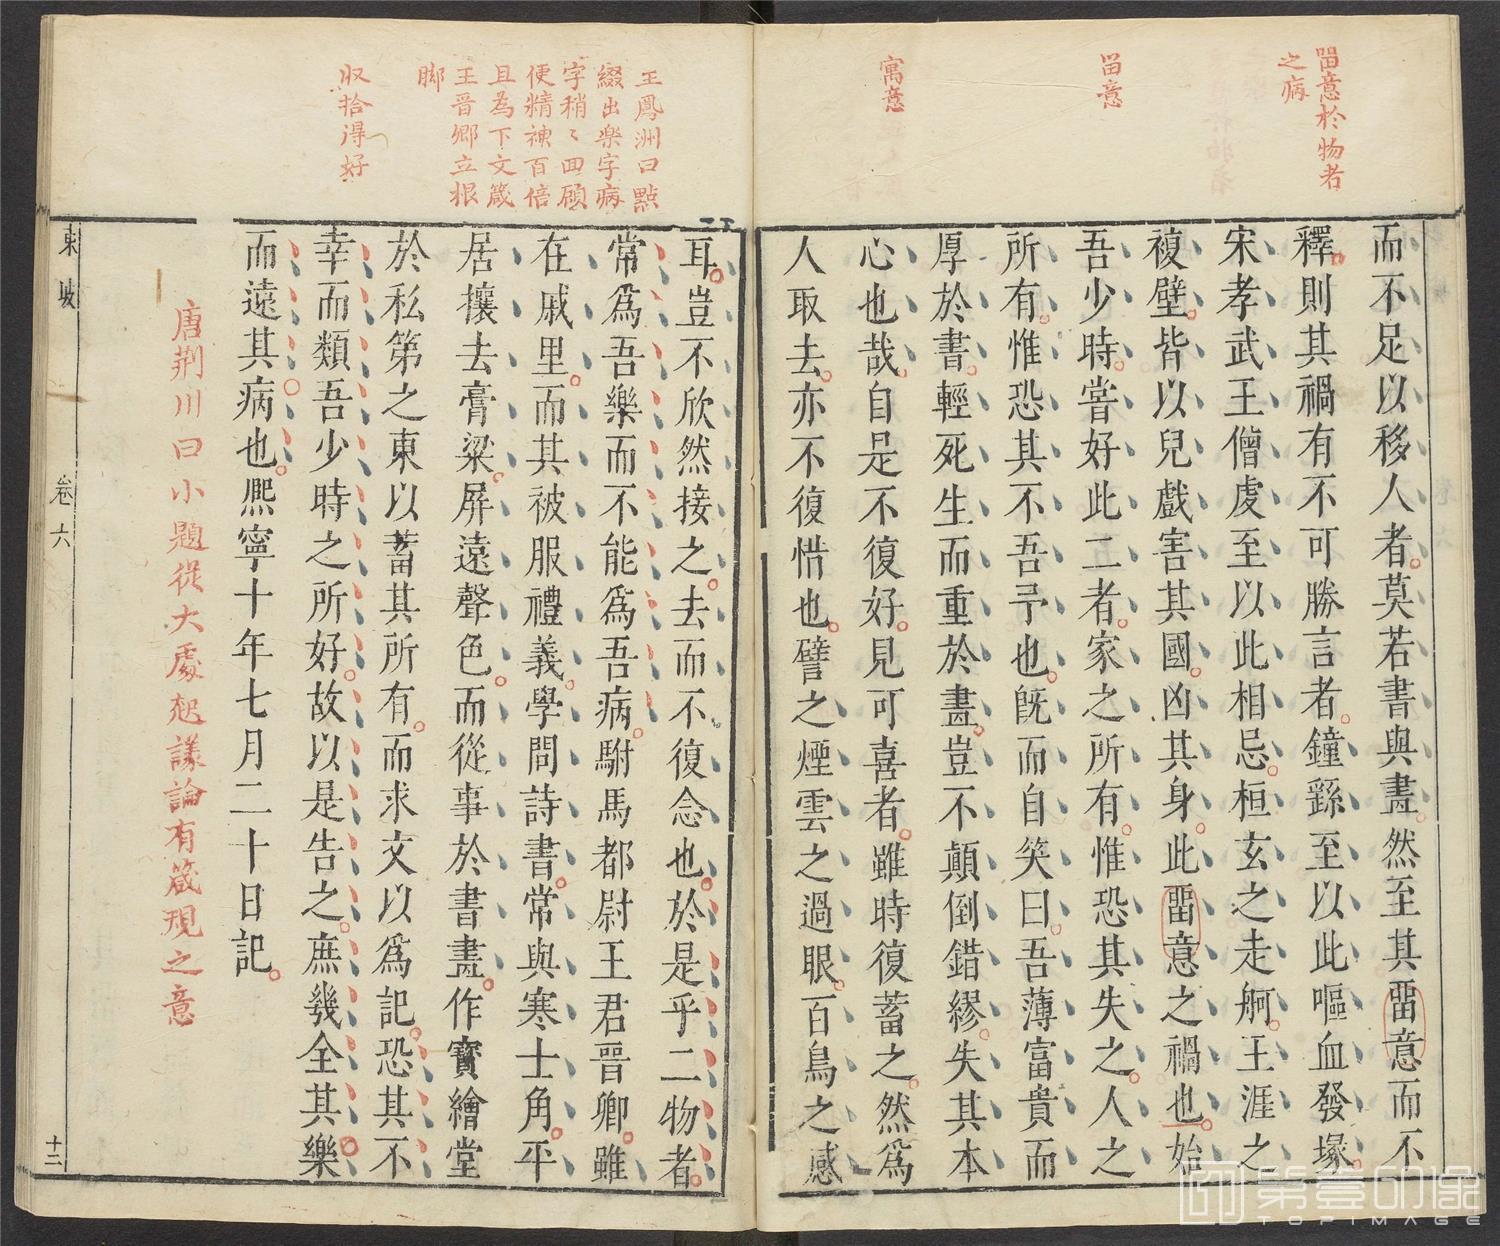 畱意於物者
之病
畱意
寓意
而不足以移人者莫若書與畫然至其畱意而不
釋則其禍有不可勝言者鐘繇至以此嘔血發塚
宋孝武王僧虔至以此相忌桓玄之走舸王涯之
複壁皆以兒戲害其國凶其身此畱意之禍也始
吾少時嘗好此二者家之所有惟恐其失之人之
所有惟恐其不吾予也旣而自笑曰吾薄富貴而
厚於書輕死生而重於畫豈不顛倒錯繆失其本
心也哉自是不復好見可喜者雖時復蓄之然爲
人取去亦不復惜也譬之煙雲之過眼百鳥之感
王鳳洲曰點
綴出樂字病
字稍〻回顧
便精神百倍
且為下文箴
王晉卿立根
脚
収拾得好
耳豈不欣然接之去而不復念也於是乎二物者
常爲吾樂而不能爲吾病駙馬都尉王君晉卿雖
在戚里而其被服禮義學問詩書常與寒士角平
居攘去膏粱屏遠聲色而從事於書畫作寶繪堂
於私第之東以蓄其所有而求文以爲記恐其不
幸而類吾少時之所好故以是告之庶幾全其樂
而遠其病也熙寧十年七月二十日記
唐荆川曰小題從大處起議論有箴規之意
東坡
卷六
十二
第壹印像
TOPIMAGE